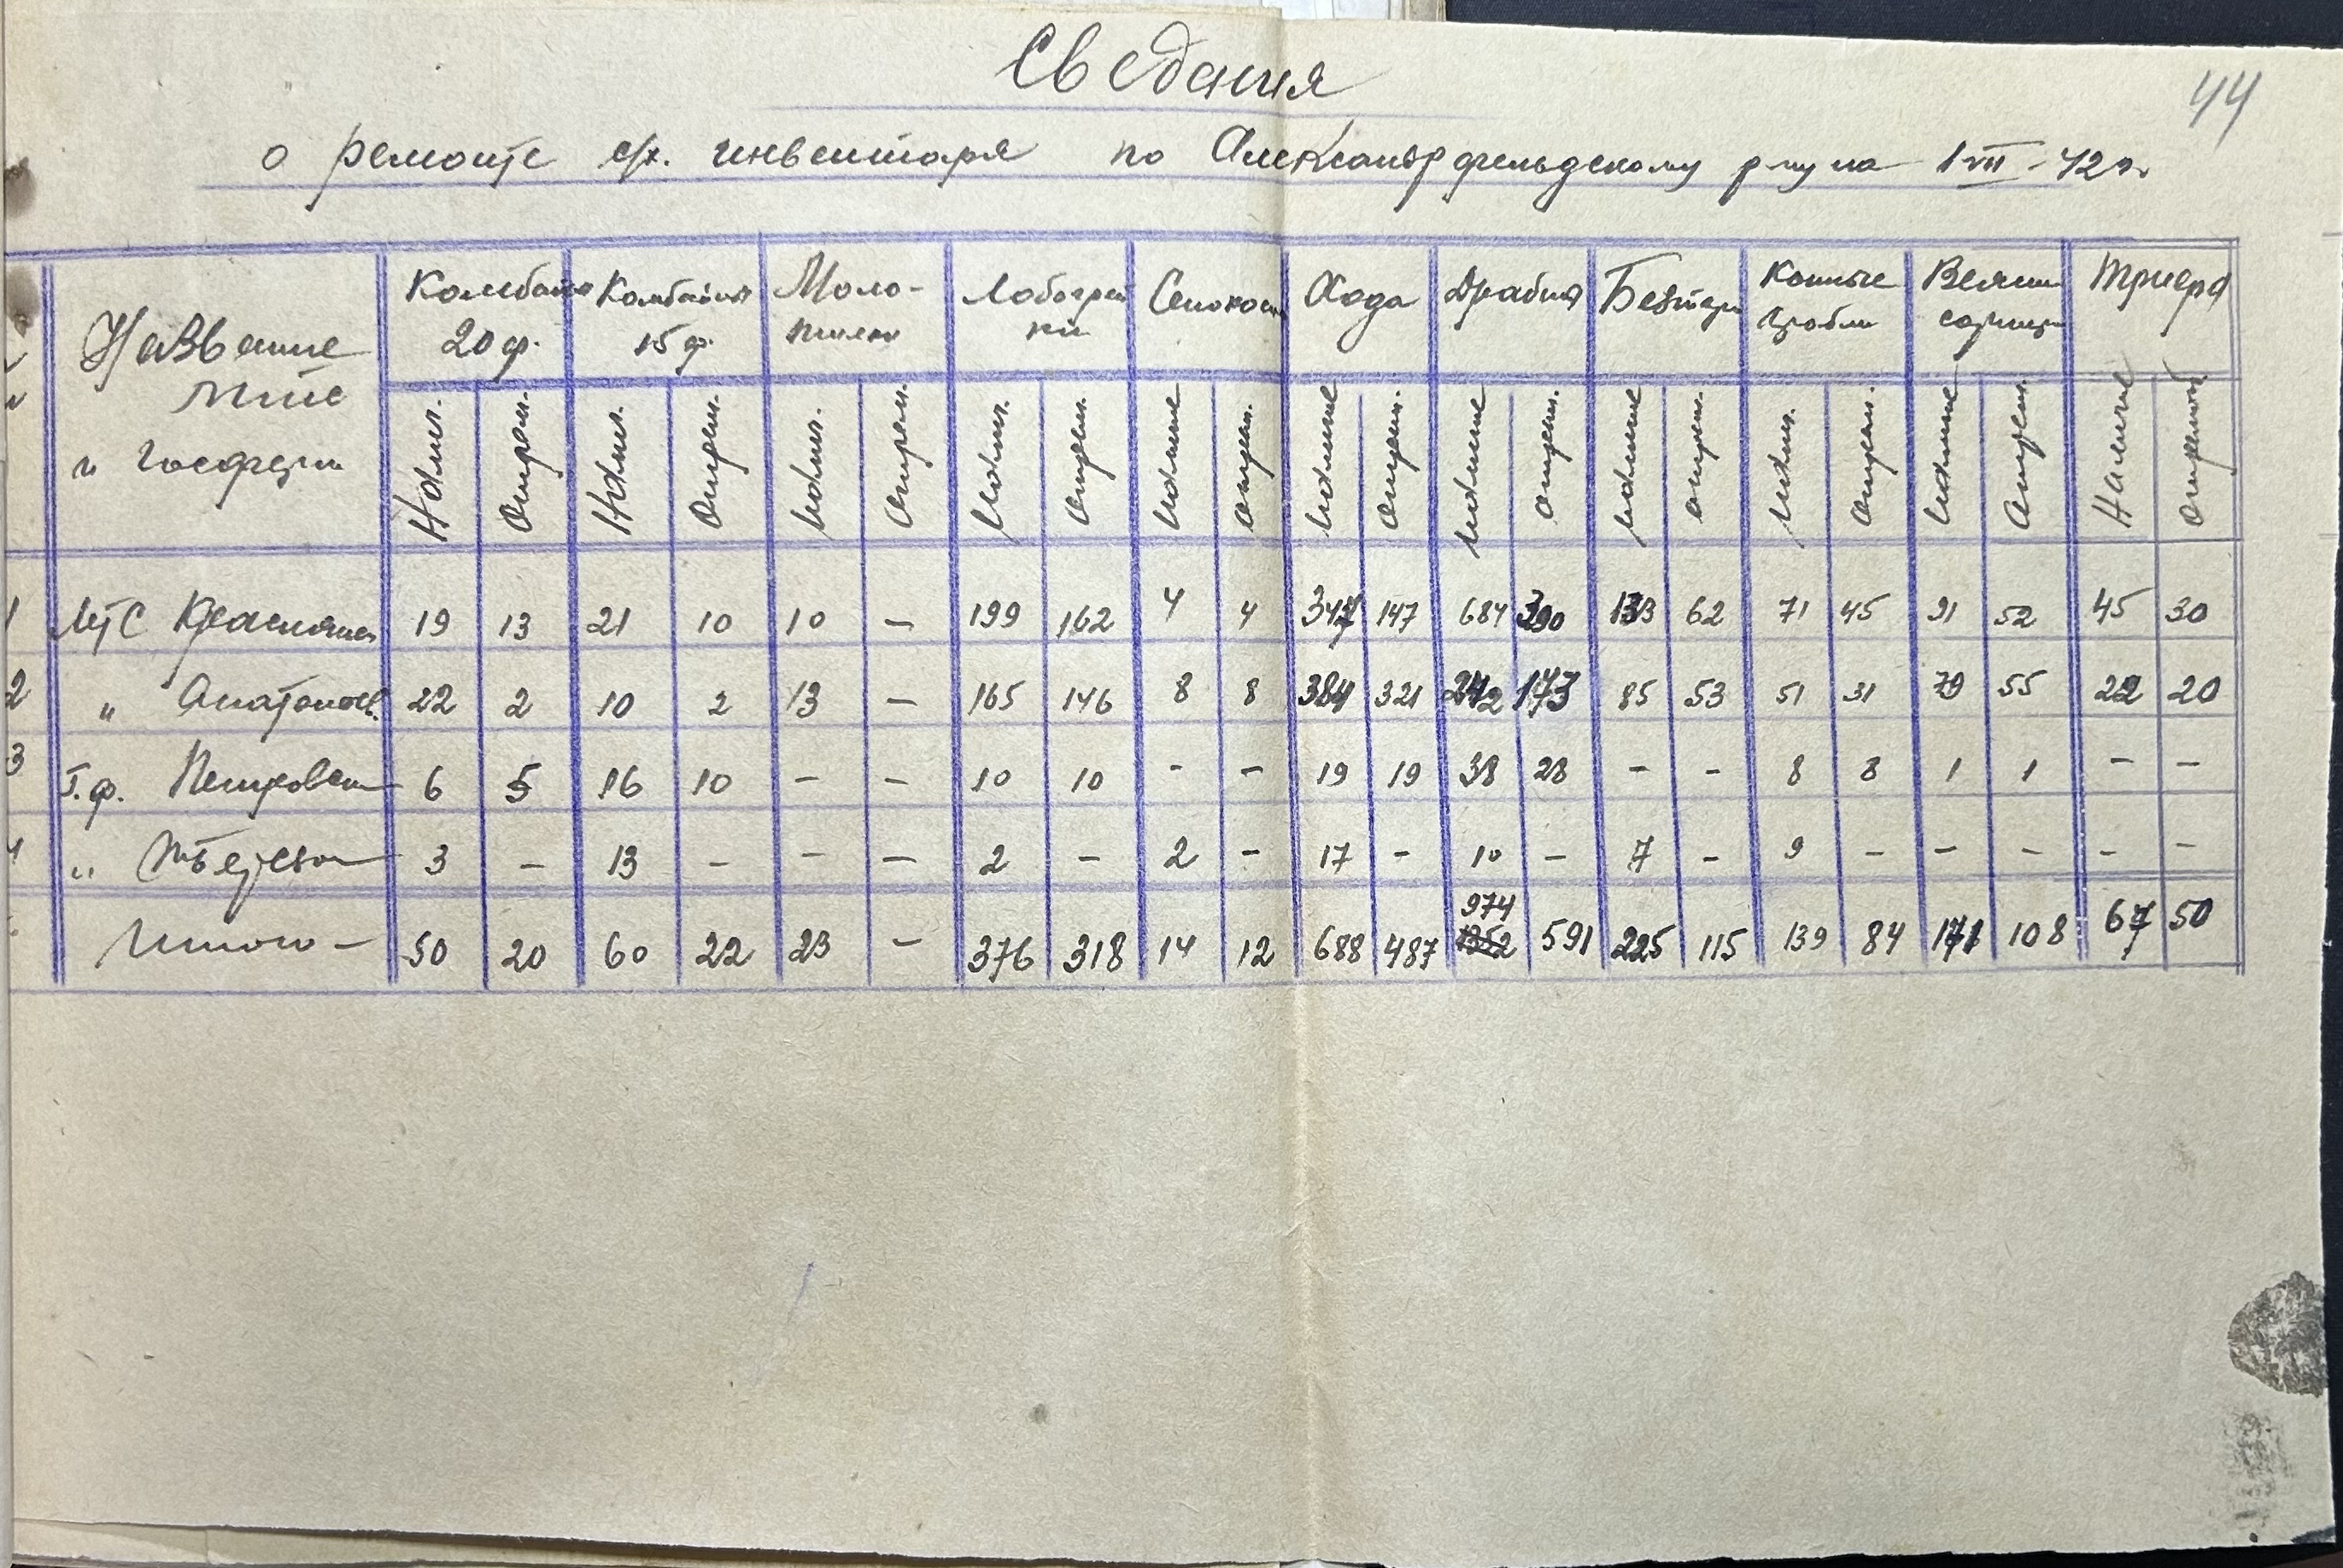 44
Сведения
о ремонте с/х. инвентаря по Александрфельдскому р-ну на 1 VII - 42 г.
Название МТС и госферм | Комбайны 20 ф. | Комбайны 15 ф. | Моло-тилки | Лобогрей ки | Сенокос | Хода | Драбин | Безтар | Конные грабли | Веялки сортир | Триера
Налич. | Отрем. | Налич. | Отрем. | Налич. | Отрем. | Налич. | Отрем. | Наличие | Отрем. | Наличие | Отрем. | Наличие | Отрем. | Наличие | Отрем. | Налич. | Отрем. | Наличие | Отрем. | Наличие | Отремонт
1 | МТС Краснянск | 19 | 13 | 21 | 10 | 10 | — | 199 | 162 | 4 | 4 | 347 | 147 | 684 | 390 | 133 | 62 | 71 | 45 | 91 | 52 | 45 | 30
2 | " Анатольев. | 22 | 2 | 10 | 2 | 13 | — | 165 | 146 | 8 | 8 | 384 | 321 | 242 | 173 | 85 | 53 | 51 | 31 | 79 | 55 | 22 | 20
3 | Г.ф. Петровск | 6 | 5 | 16 | 10 | – | – | 10 | 10 | - | – | 19 | 19 | 38 | 28 | – | - | 8 | 8 | 1 | 1 | – | –
4 | " | 3 | – | 13 | – | – | – | 2 | – | 2 | – | 17 | – | 10 | – | 7 | – | 9 | – | – | – | – | –
Итого – | 50 | 20 | 60 | 22 | 23 | – | 376 | 318 | 14 | 12 | 688 | 487 | 974 | 591 | 225 | 115 | 139 | 84 | 171 | 108 | 67 | 50